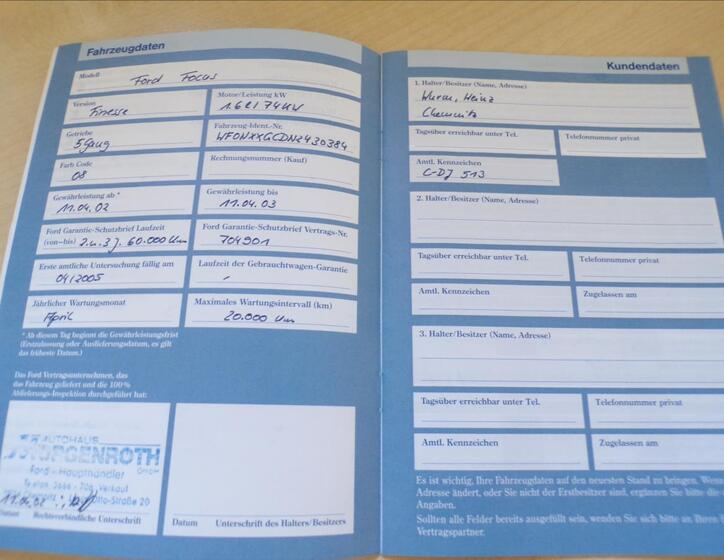 Fahrzeugdaten
Modell
Ford Focus
Version
Finesse
Motor/Leistung kW
1.6 l / 74 KW
Getriebe
5 Gang
Fahrzeug-Ident.-Nr.
WF0NXXGCDN2430384
Farb Code
08
Rechnungsnummer (Kauf)
Gewährleistung ab *
11.04.02
Gewährleistung bis
11.04.03
Ford Garantie-Schutzbrief Laufzeit
(von–bis) 2.u.3 J. 60.000 Km
Ford Garantie-Schutzbrief Vertrags-Nr.
704901
Erste amtliche Untersuchung fällig am
04/2005
Laufzeit der Gebrauchtwagen-Garantie
-
Jährlicher Wartungsmonat
April
Maximales Wartungsintervall (km)
20.000 Km
* Ab diesem Tag beginnt die Gewährleistungsfrist
(Erstzulassung oder Auslieferungsdatum, es gilt
das früheste Datum.)
Das Ford Vertragsunternehmen, das
das Fahrzeug geliefert und die 100%
Ablieferungs-Inspektion durchgeführt hat:
AUTOHAUS
MORGENROTH
GmbH
Ford - Haupthändler
Verkauf
Otto-Straße 20
Datum Rechtsverbindliche Unterschrift
Datum Unterschrift des Halters/Besitzers
Kundendaten
1. Halter/Besitzer (Name, Adresse)
Wurm, Heinz
Chemnitz
Tagsüber erreichbar unter Tel.
Telefonnummer privat
Amtl. Kennzeichen
C-DJ 513
2. Halter/Besitzer (Name, Adresse)
Tagsüber erreichbar unter Tel.
Telefonnummer privat
Amtl. Kennzeichen
Zugelassen am
3. Halter/Besitzer (Name, Adresse)
Tagsüber erreichbar unter Tel.
Telefonnummer privat
Amtl. Kennzeichen
Zugelassen am
Es ist wichtig, Ihre Fahrzeugdaten auf den neuesten Stand zu bringen. Wenn
Adresse ändert, oder Sie nicht der Erstbesitzer sind, ergänzen Sie bitte die
Angaben.
Sollten alle Felder bereits ausgefüllt sein, wenden Sie sich bitte an Ihren
Vertragspartner.